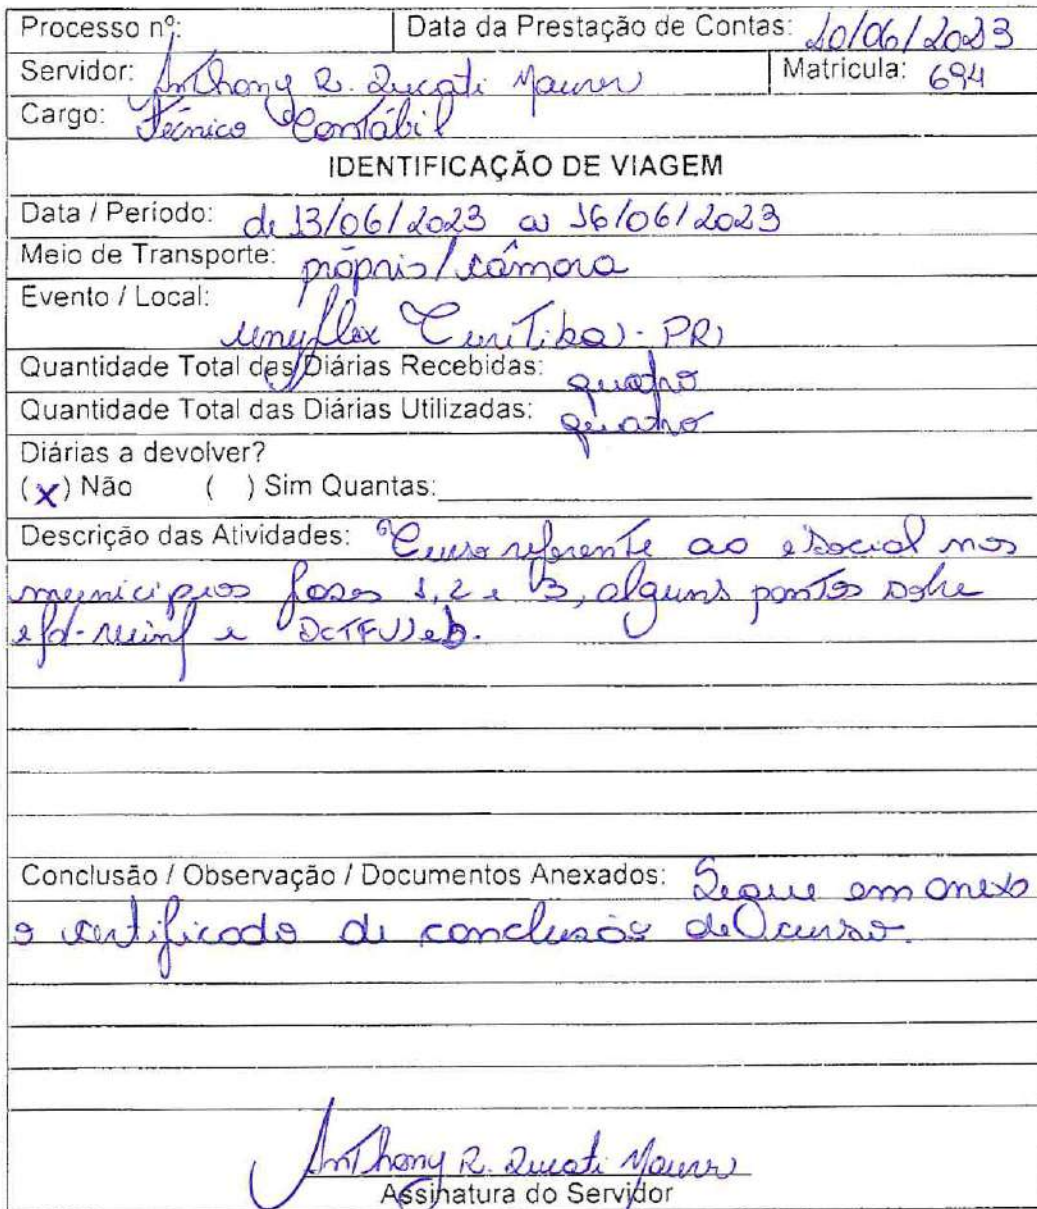 Processo nº: Data da Prestação de Contas: 20/06/2023
Servidor: Anthony R. Ducati Maurer Matrícula: 694
Cargo: Técnico Contábil
IDENTIFICAÇÃO DE VIAGEM
Data / Período: de 13/06/2023 a 16/06/2023
Meio de Transporte: próprio/câmara
Evento / Local:
unyflex Curitiba - PR
Quantidade Total das Diárias Recebidas: quatro
Quantidade Total das Diárias Utilizadas: quatro
Diárias a devolver?
(x) Não ( ) Sim Quantas:
Descrição das Atividades: Curso referente ao eSocial nos
municípios fases 1, 2 e 3, alguns pontos sobre
efd-reinf e DCTFWeb.
Conclusão / Observação / Documentos Anexados: Segue em anexo
o certificado de conclusão de curso.
Anthony R. Ducati Maurer
Assinatura do Servidor